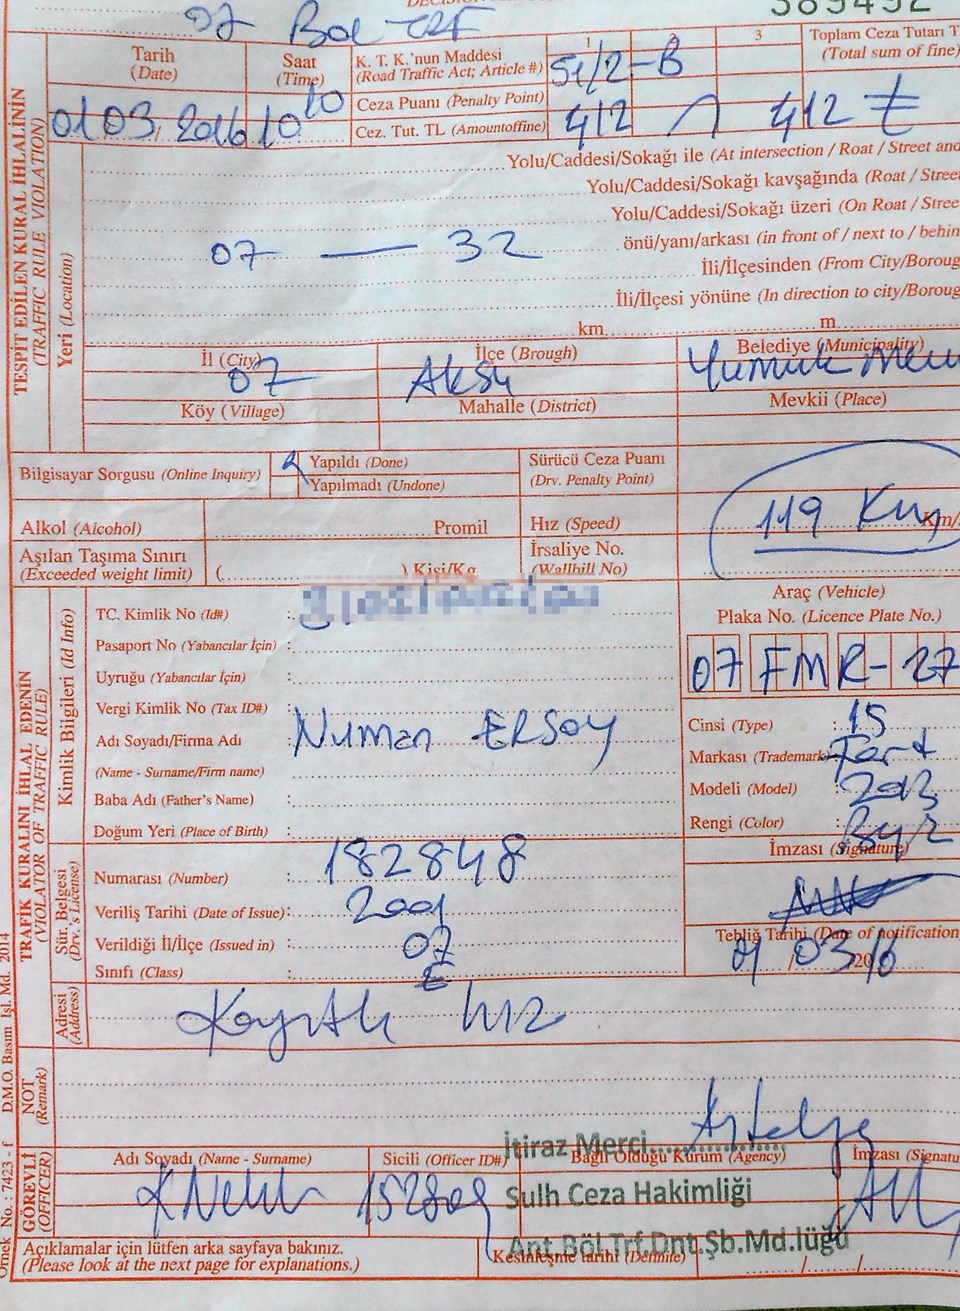 389492
07 Böl TRF
Tarih
(Date)
Saat
(Time)
K. T. K.'nun Maddesi
(Road Traffic Act; Article #)
1
2
3
Toplam Ceza Tutarı T
(Total sum of fine)
51/2-B
Ceza Puanı (Penalty Point)
01 03 2016 10 10
Cez. Tut. TL (Amountoffine)
412 412 ₺
TESPİT EDİLEN KURAL İHLALİNİN
(TRAFFIC RULE VIOLATION)
Yeri (Location)
Yolu/Caddesi/Sokağı ile (At intersection / Roat / Street and
Yolu/Caddesi/Sokağı kavşağında (Roat / Stree
Yolu/Caddesi/Sokağı üzeri (On Roat / Stree
07 — 32 önü/yanı/arkası (in front of / next to / behin
İli/İlçesinden (From City/Boroug
İli/İlçesi yönüne (In direction to city/Boroug
km m
İl (City)
07
İlçe (Brough)
Aksu
Belediye (Municipality)
Köy (Village)
Mahalle (District)
Mevkii (Place)
Bilgisayar Sorgusu (Online Inquiry)
Yapıldı (Done)
Yapılmadı (Undone)
Sürücü Ceza Puanı
(Drv. Penalty Point)
Alkol (Alcohol) Promil
Hız (Speed) 119 Km Km/
Aşılan Taşıma Sınırı
(Exceeded weight limit) ( ) Kişi/Kg
İrsaliye No.
(Wallbill No)
TRAFİK KURALINI İHLAL EDENİN
(VIOLATOR OF TRAFFIC RULE)
Kimlik Bilgileri (Id Info)
TC. Kimlik No (Id#) :
Pasaport No (Yabancılar İçin) :
Uyruğu (Yabancılar İçin) :
Vergi Kimlik No (Tax ID#) :
Adı Soyadı/Firma Adı : Numan ERSOY
(Name - Surname/Firm name) :
Baba Adı (Father's Name) :
Doğum Yeri (Place of Birth) :
Araç (Vehicle)
Plaka No. (Licence Plate No.)
07 FMR-27
Cinsi (Type) : 15
Markası (Trademark) :
Modeli (Model) : 2013
Rengi (Color) : Byz
İmzası (Signature)
Tebliğ Tarihi (Date of notification
01/03/2016
Sür. Belgesi
(Drv.'s License)
Numarası (Number) : 182848
Veriliş Tarihi (Date of Issue) : 2001
Verildiği İl/İlçe (Issued in) : 07
Sınıfı (Class) : E
Adresi
(Address)
Kayıtlı hız
NOT
(Remark)
Antalya
İtiraz Merci
Sulh Ceza Hakimliği
Ant.Böl.Trf.Dnt.Şb.Md.lüğü
GÖREVLİ
(OFFICER)
Adı Soyadı (Name - Surname)
Sicili (Officer ID#)
Bağlı Olduğu Kurum (Agency)
İmzası (Signatu
Açıklamalar için lütfen arka sayfaya bakınız.
(Please look at the next page for explanations.)
Kesinleşme tarihi (Definite) / /
Örnek No. : 7423 - f D.M.O. Basım İşl. Md. 2014